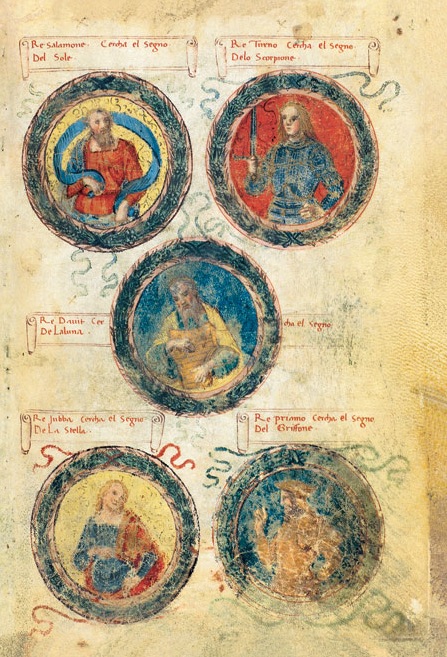 Re Salamone Cercha el Segno
Del Sole
Re Turno Cercha el Segno
Delo Scorpione
Re Davit Cer cha el Segno
De Laluna
Re Jubba Cercha el Segno
De La Stella
Re priamo Cercha el Segno
Del Griffone